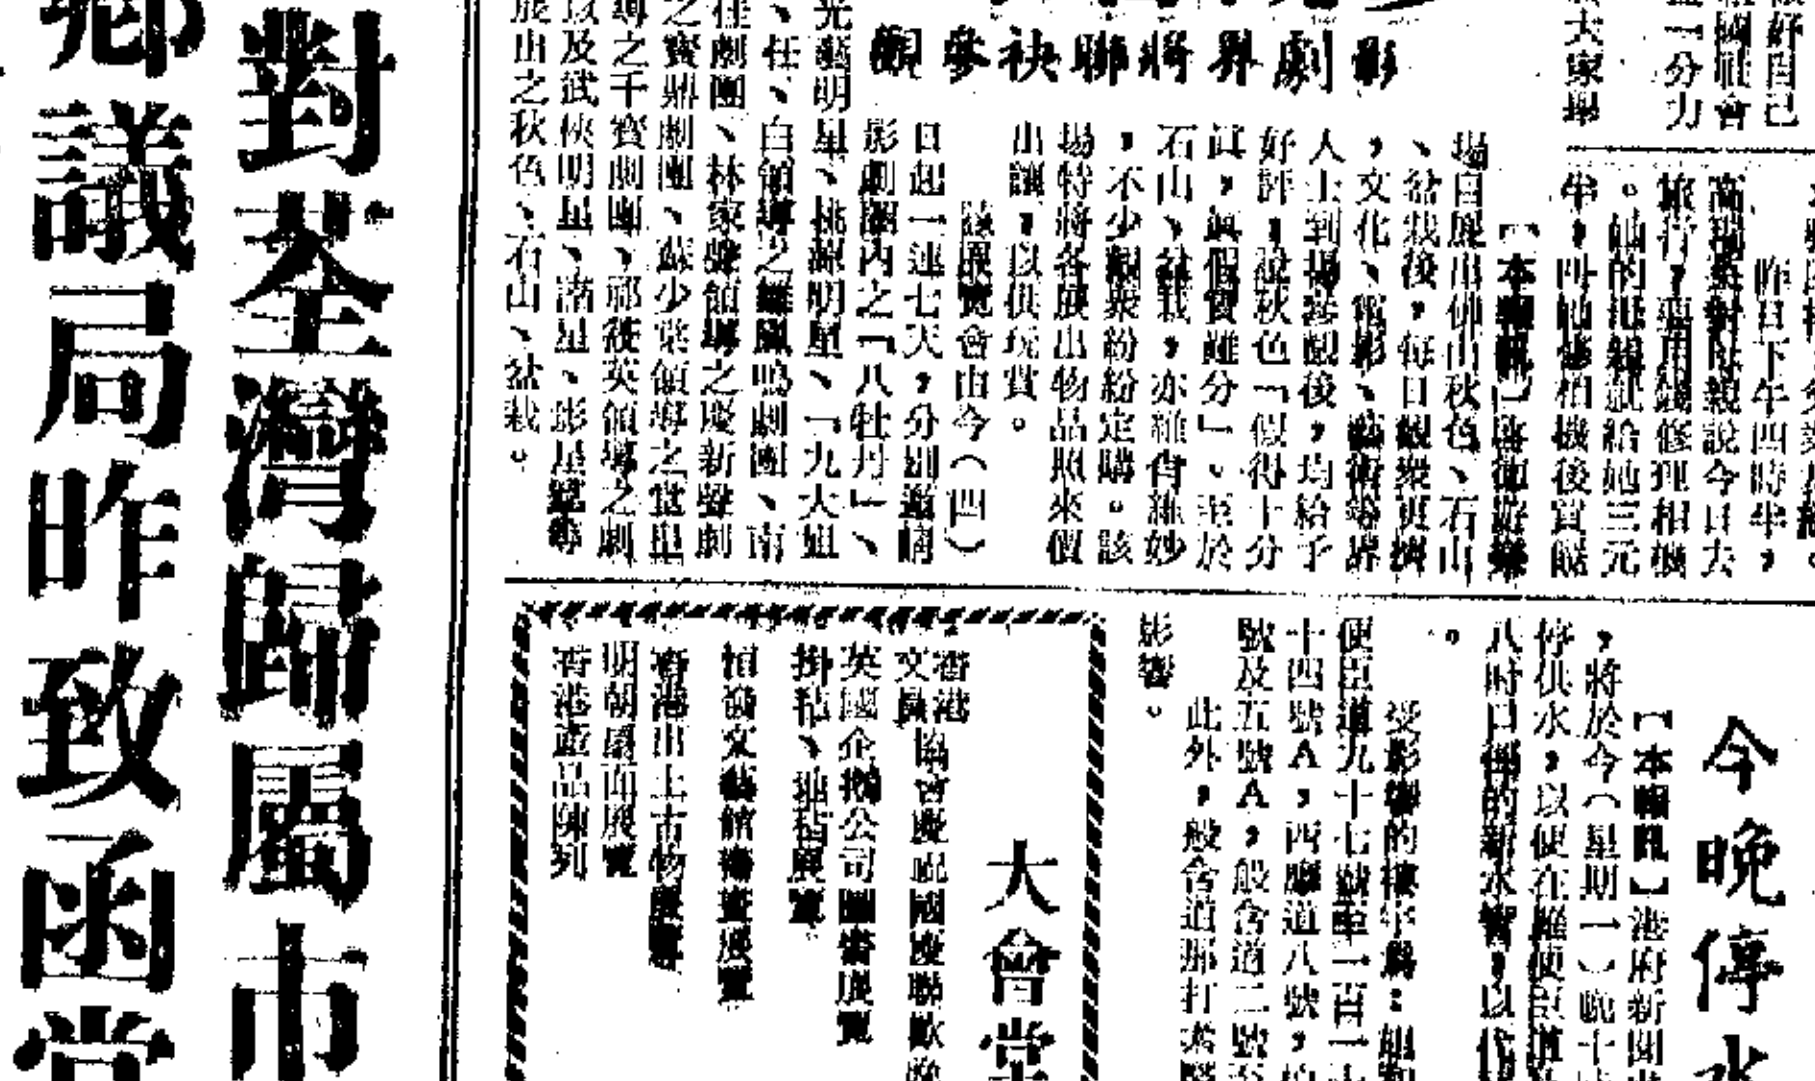 好自己
國社會
一分力
大家舉
昨日下午四時半,
母親說今日去
旅行,要用錢修理相機
。她的母親就給她三元
半,
影劇界將聯袂參觀
【本報訊】
場自展出佛山秋色、石山
、盆栽後,每日觀衆更擠
,文化、電影、藝術等界
人士到場參觀後,均給予
好評,說秋色「假得十分
眞,眞假實難分」。至於
石山、盆栽,亦維肖維妙
,不少觀衆紛紛定購。該
場特將各展出物品照來價
出讓,以供玩賞。
該展覽會由今(四)
日起一連七天,分別邀請
影劇圈內之「八牡丹」、
光藝明星、桃源明星、「九大姐
、任、白領導之雛鳳鳴劇團、南
佳劇團、林家聲領導之慶新聲劇
之寶鼎劇團、蘇少棠領導之
導之千寶劇團、英領導之劇
以及武俠明星、諧星、影星
山之秋色、石山、盆栽。
對荃灣歸屬市
鄉議局昨致函當
今晚停水
【本報訊】港府新聞
,將於今(星期一)晚十
停供水,以便在羅便臣道
八時口徑的新水管,以代
。
受影響的樓宇爲:
便臣道九十七號至一百一十
十四號A,西摩道八號,
號及五號A,般含道二號至
此外,般含道那打素醫
影響。
大會堂
香港
文員協會慶祝國慶聯歡
英國企鵝公司圖書展覽
掛毡、地毡展覽
文藝館 展覽
香港出土古物展覽
明朝扇面展覽
香港產品陳列